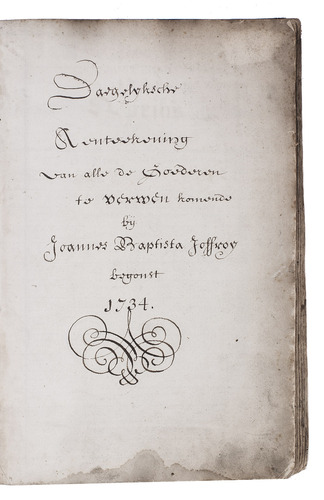 Daegelyksche
Aenteekening
van alle de Goederen
te verwen komende
by
Joannes Baptista Joffroy
begonst
1734.